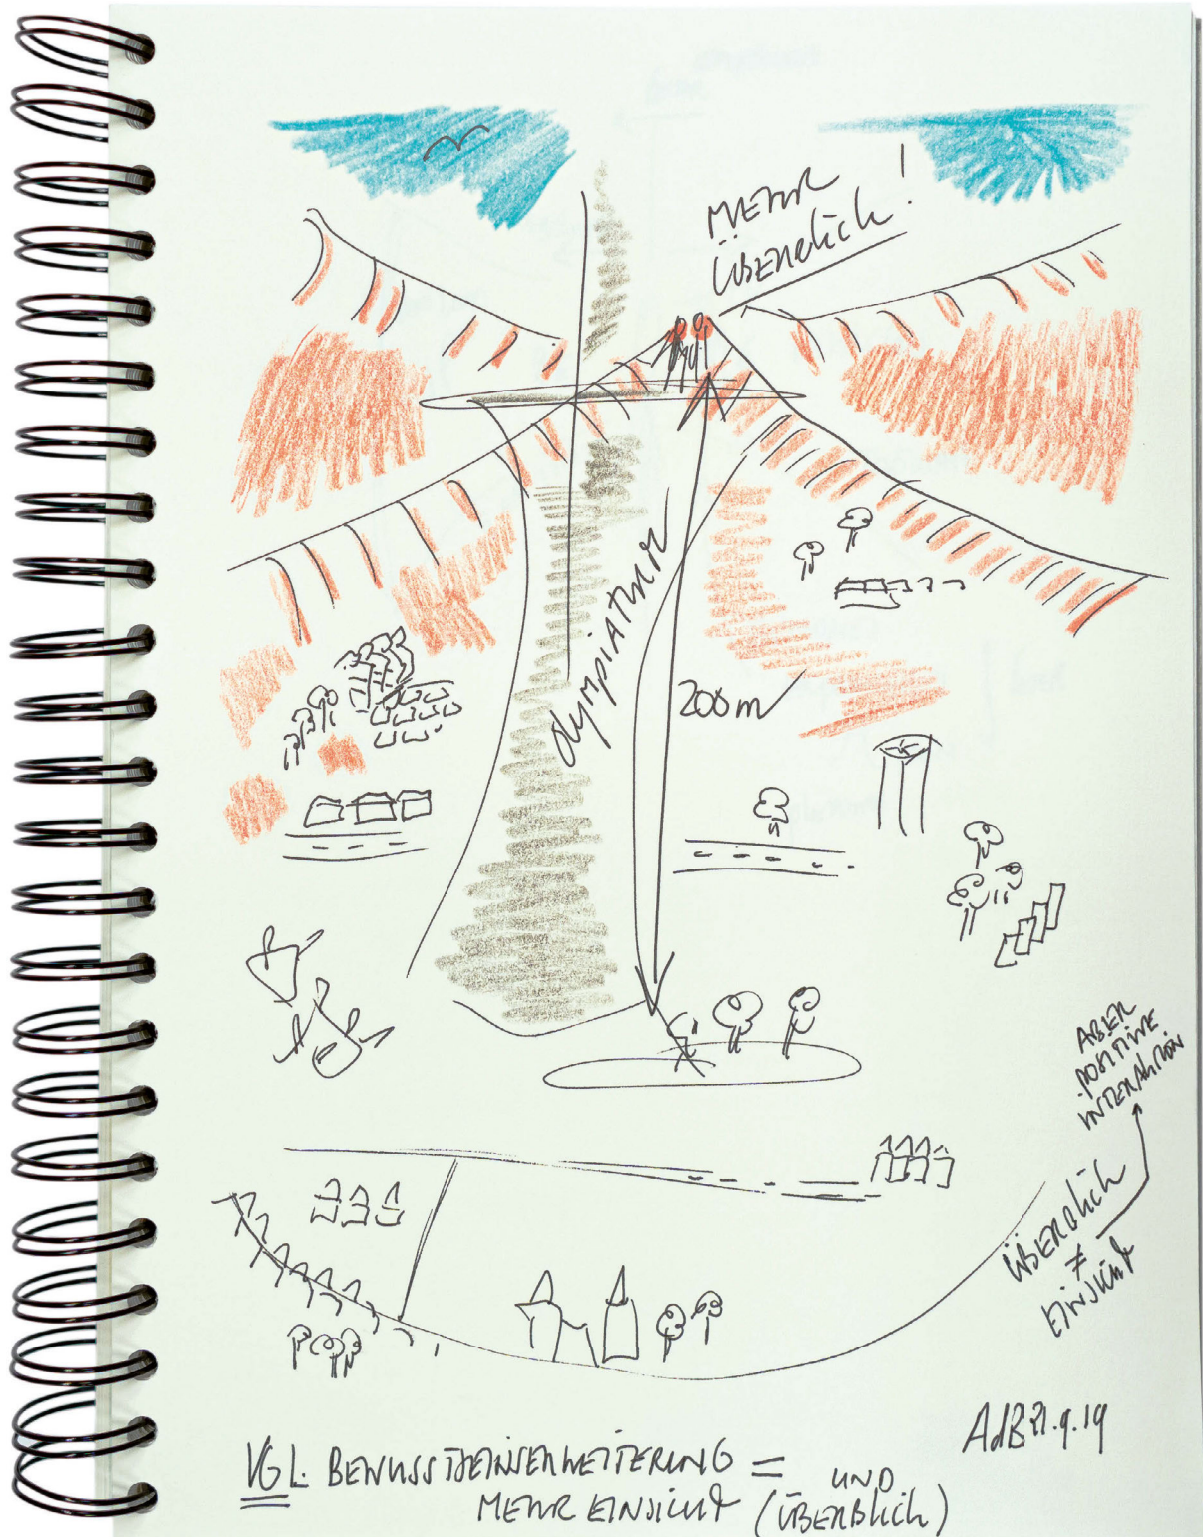 MEHR
ÜBERBLICK!
OLYMPIATURM
200m
ABER
POSITIVE
INTERAKTION
ÜBERBLICK
≠
EINSICHT
AdB 21.9.19
VGL. BEWUSSTSEINSERWEITERUNG =
MEHR EINSICHT UND (ÜBERBLICK)